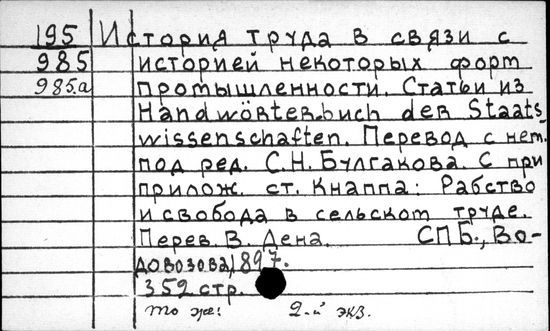 195 История труда в связи с
985 историей некоторых форм
985.а промышленности. Статьи из
Handwörterbuch der Staats
wissenschaften. Перевод с нем.
под ред. С.Н. Булгакова. С при
прилож. ст. Кнаппа: Рабство
и свобода в сельском труде.
Перев. В. Дена. СПБ., Во-
довозова, 1897.
352 стр.
То же: 2-й экз.